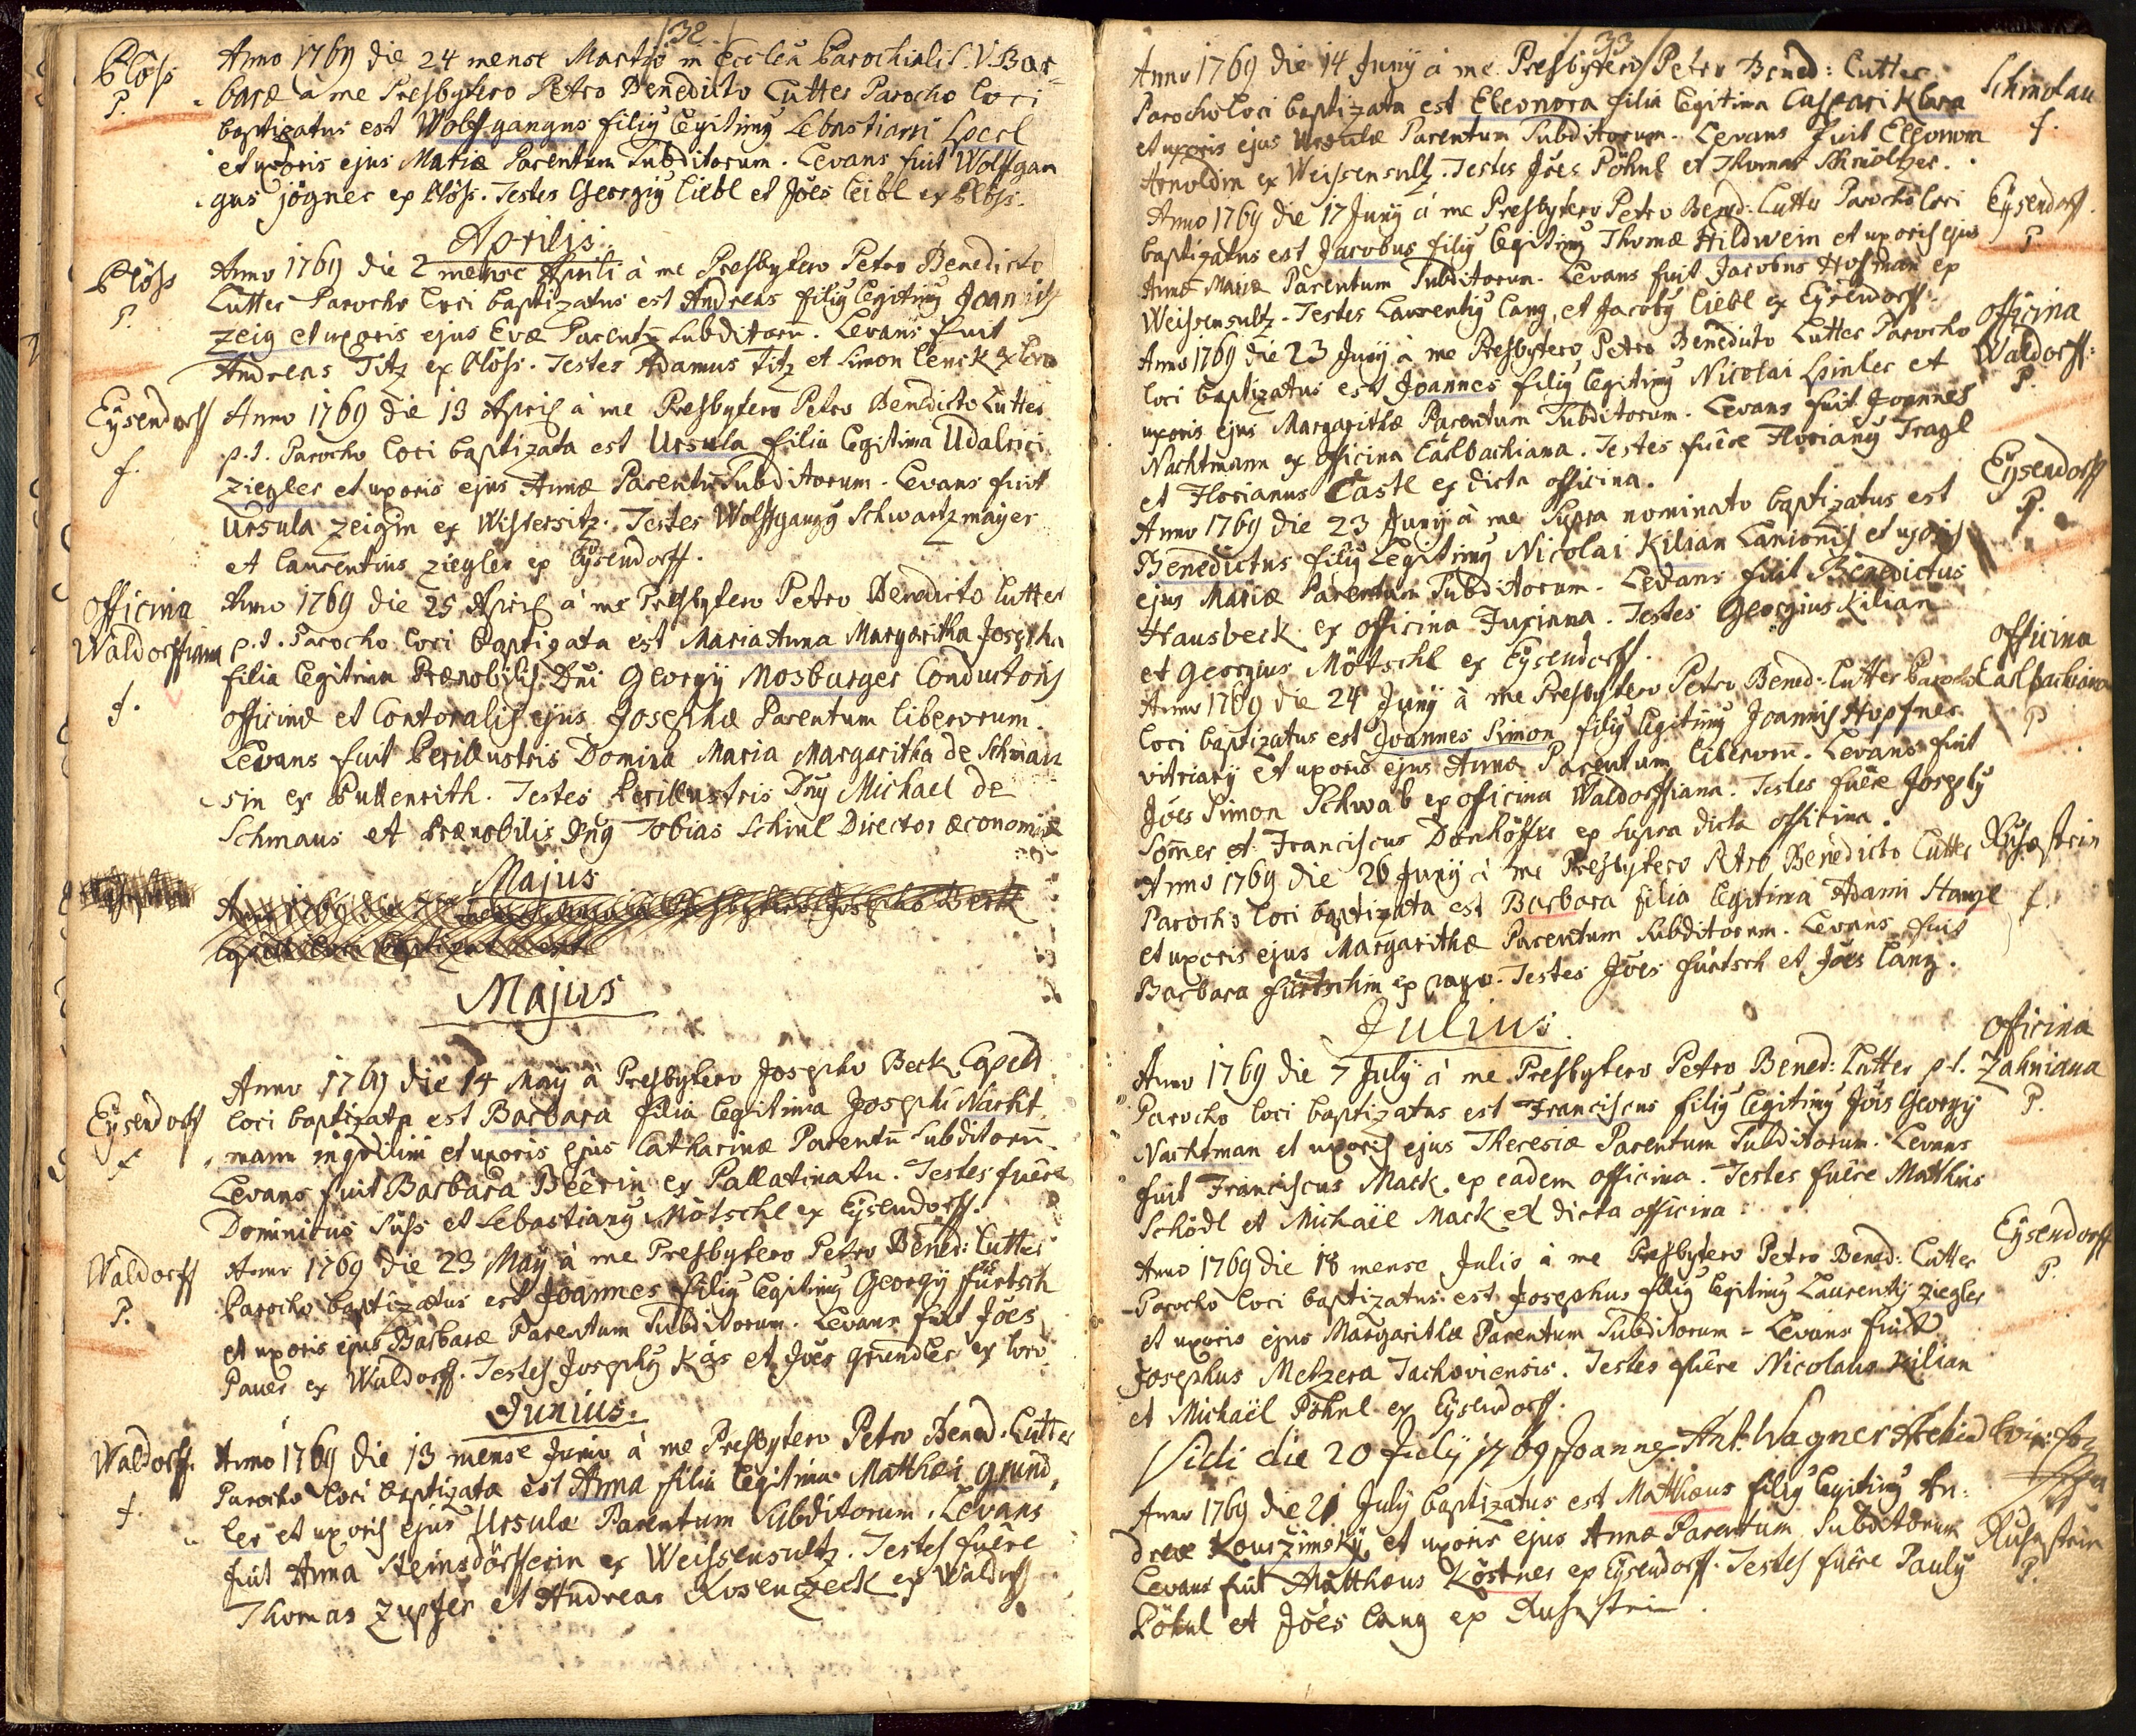 32
Blöss Anno 1769 die 24 mense Martio in Ecclea Parochiali S. V. Bar-
P. baræ à me Presbytero Petro Benedicto Lutter Parocho loci
baptizatus est Wolffgangus filiy legitimy Sebastiani
et uxoris ejus Mariæ Parentum Subditorum. Levans fuit Wolffgan
gus jögner ex Plöss. Testes Georgiy liebl et Jões leibl ex Plöss.
Aprilis
Plöss Anno 1769 die 2 mense Aprili à me Presbytero Petro Benedicto
P. Lutter Parocho loci baptizatus est Andreas filiy legitimy Joannis
zeig et uxoris ejus Evæ Parentū Subditorū. Levans fuit
Andreas Titz ex Plöss. Testes Adamus Titz et Simon lenck ex loco
Eysendorff Anno 1769 die 13 April à me Presbytero Petro Benedicto Lutter
f. p.t. Parocho loci baptizata est Ursula filia legitima Udalrici
ziegler et uxoris ejus Annæ Parentū Subditorum. Levans fuit
Ursula zeigin ex Wistersitz. Testes Wolffgangy Schwartzmayer
et laurentius ziegler ex Eysendorff.
officina Anno 1769 die 25 April à me Presbytero Petro Benedicto Lutter
Waldorffiana p.t. Parocho loci baptizata est Maria Anna Margaritha Josepha
filia legitima Prænobilis Dni Georgÿ Mosburger Conductoris
f. officinæ et Contoralis ejus Josephæ Parentum liberorum.
Levans fuit Perillustris Domina Maria Margaritha de Schmau
sin ex Puttenrith. Testes Perillustris Dny Michael de
Schmaus et Prænobilis Dny Tobias Schiml Director œconomiæ
Majus
Majus
Anno 1769 die 14 Maÿ à Presbytero Josepho Beck
Eysendorff loci baptizata est Barbara filia legitima Josephi Nacht
f. mann et uxoris ejus Catharinæ Parentū Subditorū.
Levans fuit Barbara Beerin ex Pallatinatu. Testes fuêre
Dominicus Süss et Sebastiany Mötschl ex Eysendorff.
Waldorff Anno 1769 die 23 Maÿ à me Presbytero Petro Bened: Lutter
P. Parocho baptizatus est Joannes filiy legitimy Georgÿ fürtsch
et uxoris ejus Barbaræ Parentum Subditorum. Levans fuit Jões
Pauer ex Waldorff. Testes Josephy Käs et Jões gründler ex loco
Junius.
Waldorff. Anno 1769 die 13 mense Junio à me Presbytero Petro Bened. Lutter
f. Parocho loci baptizata est Anna filia legitima Matthæi gründ
ler et uxoris ejus Ursulæ Parentum Subditorum. Levans
fuit Anna Steinsdörfferin ex Weissensultz. Testes fuêre
Thomas zupfer et Andreas Rosenczeck ex Waldorff
33
Anno 1769 die 14 Junÿ à me Presbytero Petro Bened: Lutter Schmolau
Parocho loci baptizata est Eleonora filia legitima Caspari Klara f.
et uxoris ejus Ursulæ Parentum Subditorum. Levans fuit Eleonora
Arnoldin ex Weissensultz. Testes Jões Pöhnl et Thomas Schmöltzer.
Anno 1769 die 17 Junÿ à me Presbytero Petro Bened: Lutter Parocho loci Eysendorff.
baptizatus est Jacobus filiy legitimy Thomæ Hildwein et uxoris ejus P
Annæ Mariæ Parentum Subditorum. Levans fuit Jacobus Hofman ex
Weissensultz. Testes Laurentiy lang, et Jacoby liebl ex Eysendorff.
Anno 1769 die 23 Junÿ à me Presbytero Petro Benedicto Lutter Parocho officina
loci baptizatus est Joannes filiy legitimy Nicolai Spinler et Waldorff:
uxoris ejus Margarithæ Parentum Subditorum. Levans fuit Joannes P.
Nachtmann ex officina Carlbachiana. Testes fuêre Floriany Tragl
et Florianus Castl ex dicta officina.
Anno 1769 die 23 Junÿ à me Supra nominato baptizatus est Eysendorff
Benedictus filiy Legitimy Nicolai Kilian Lanionis et uxoris P.
ejus Mariæ Parentum Subditorum. Levans fuit Benedictus
Hausbeck ex officina Fuxiana. Testes Georgius Kilian
et Georgius Mötschl ex Eysendorff.
Anno 1769 die 24 Junÿ à me Presbytero Petro Bened: Lutter Parocho officina Carlbachiana
loci baptizatus est Joannes Simon filiy legitimy Joannis Hopfner P
vitriarÿ et uxoris ejus Annæ Parentum liberorū. Levans fuit
Jões Simon Schwab ex officina Waldorffiana. Testes fuêre Josephy
Som̄er et Franciscus Dornhöffer ex supra dicta officina.
Anno 1769 die 26 Junÿ à me Presbytero Petro Benedicto Lutter
Parocho loci baptizata est Barbara filia legitima Adami Hanzl f.
et uxoris ejus Margarithæ Parentum Subditorum. Levans fuit
Barbara fürtschin ex pago. Testes Jões fürtsch et Jões lang.
Julius.
Anno 1769 die 7 Julÿ à me Presbytero Petro Bened: Lutter p.t. officina Zahniana
Parocho loci baptizatus est Franciscus filiy legitimy Jõis Georgÿ P.
Nachtman et uxoris ejus Theresiæ Parentum Subditorum. Levans
fuit Franciscus Mack ex eadem officina. Testes fuêre Mathias
Schödl et Michaël Mack ex dicta officina.
Anno 1769 die 18 mense Julio à me Presbytero Petro Bened: Lutter Eysendorff
Parocho loci baptizatus est Josephus filiy legitimy Laurentÿ ziegler P.
et uxoris ejus Margarithæ Parentum Subditorum. Levans fuit
Josephus Metzera Tachoviensis. Testes fuêre Nicolaus Kilian
et Michaël Pöhnl ex Eysendorff.
Vidi die 20 July 1769 Joannes Ant: Wagner
Anno 1769 die 21 Julÿ baptizatus est Matthæus filiy legitimy An-
dreæ Kouszimskÿ et uxoris ejus Annæ Parentum Subditorum
Levans fuit Matthæus Köstner ex Eysendorff. Testes fuêre Pauly P.
Pöhnl et Jões lang ex